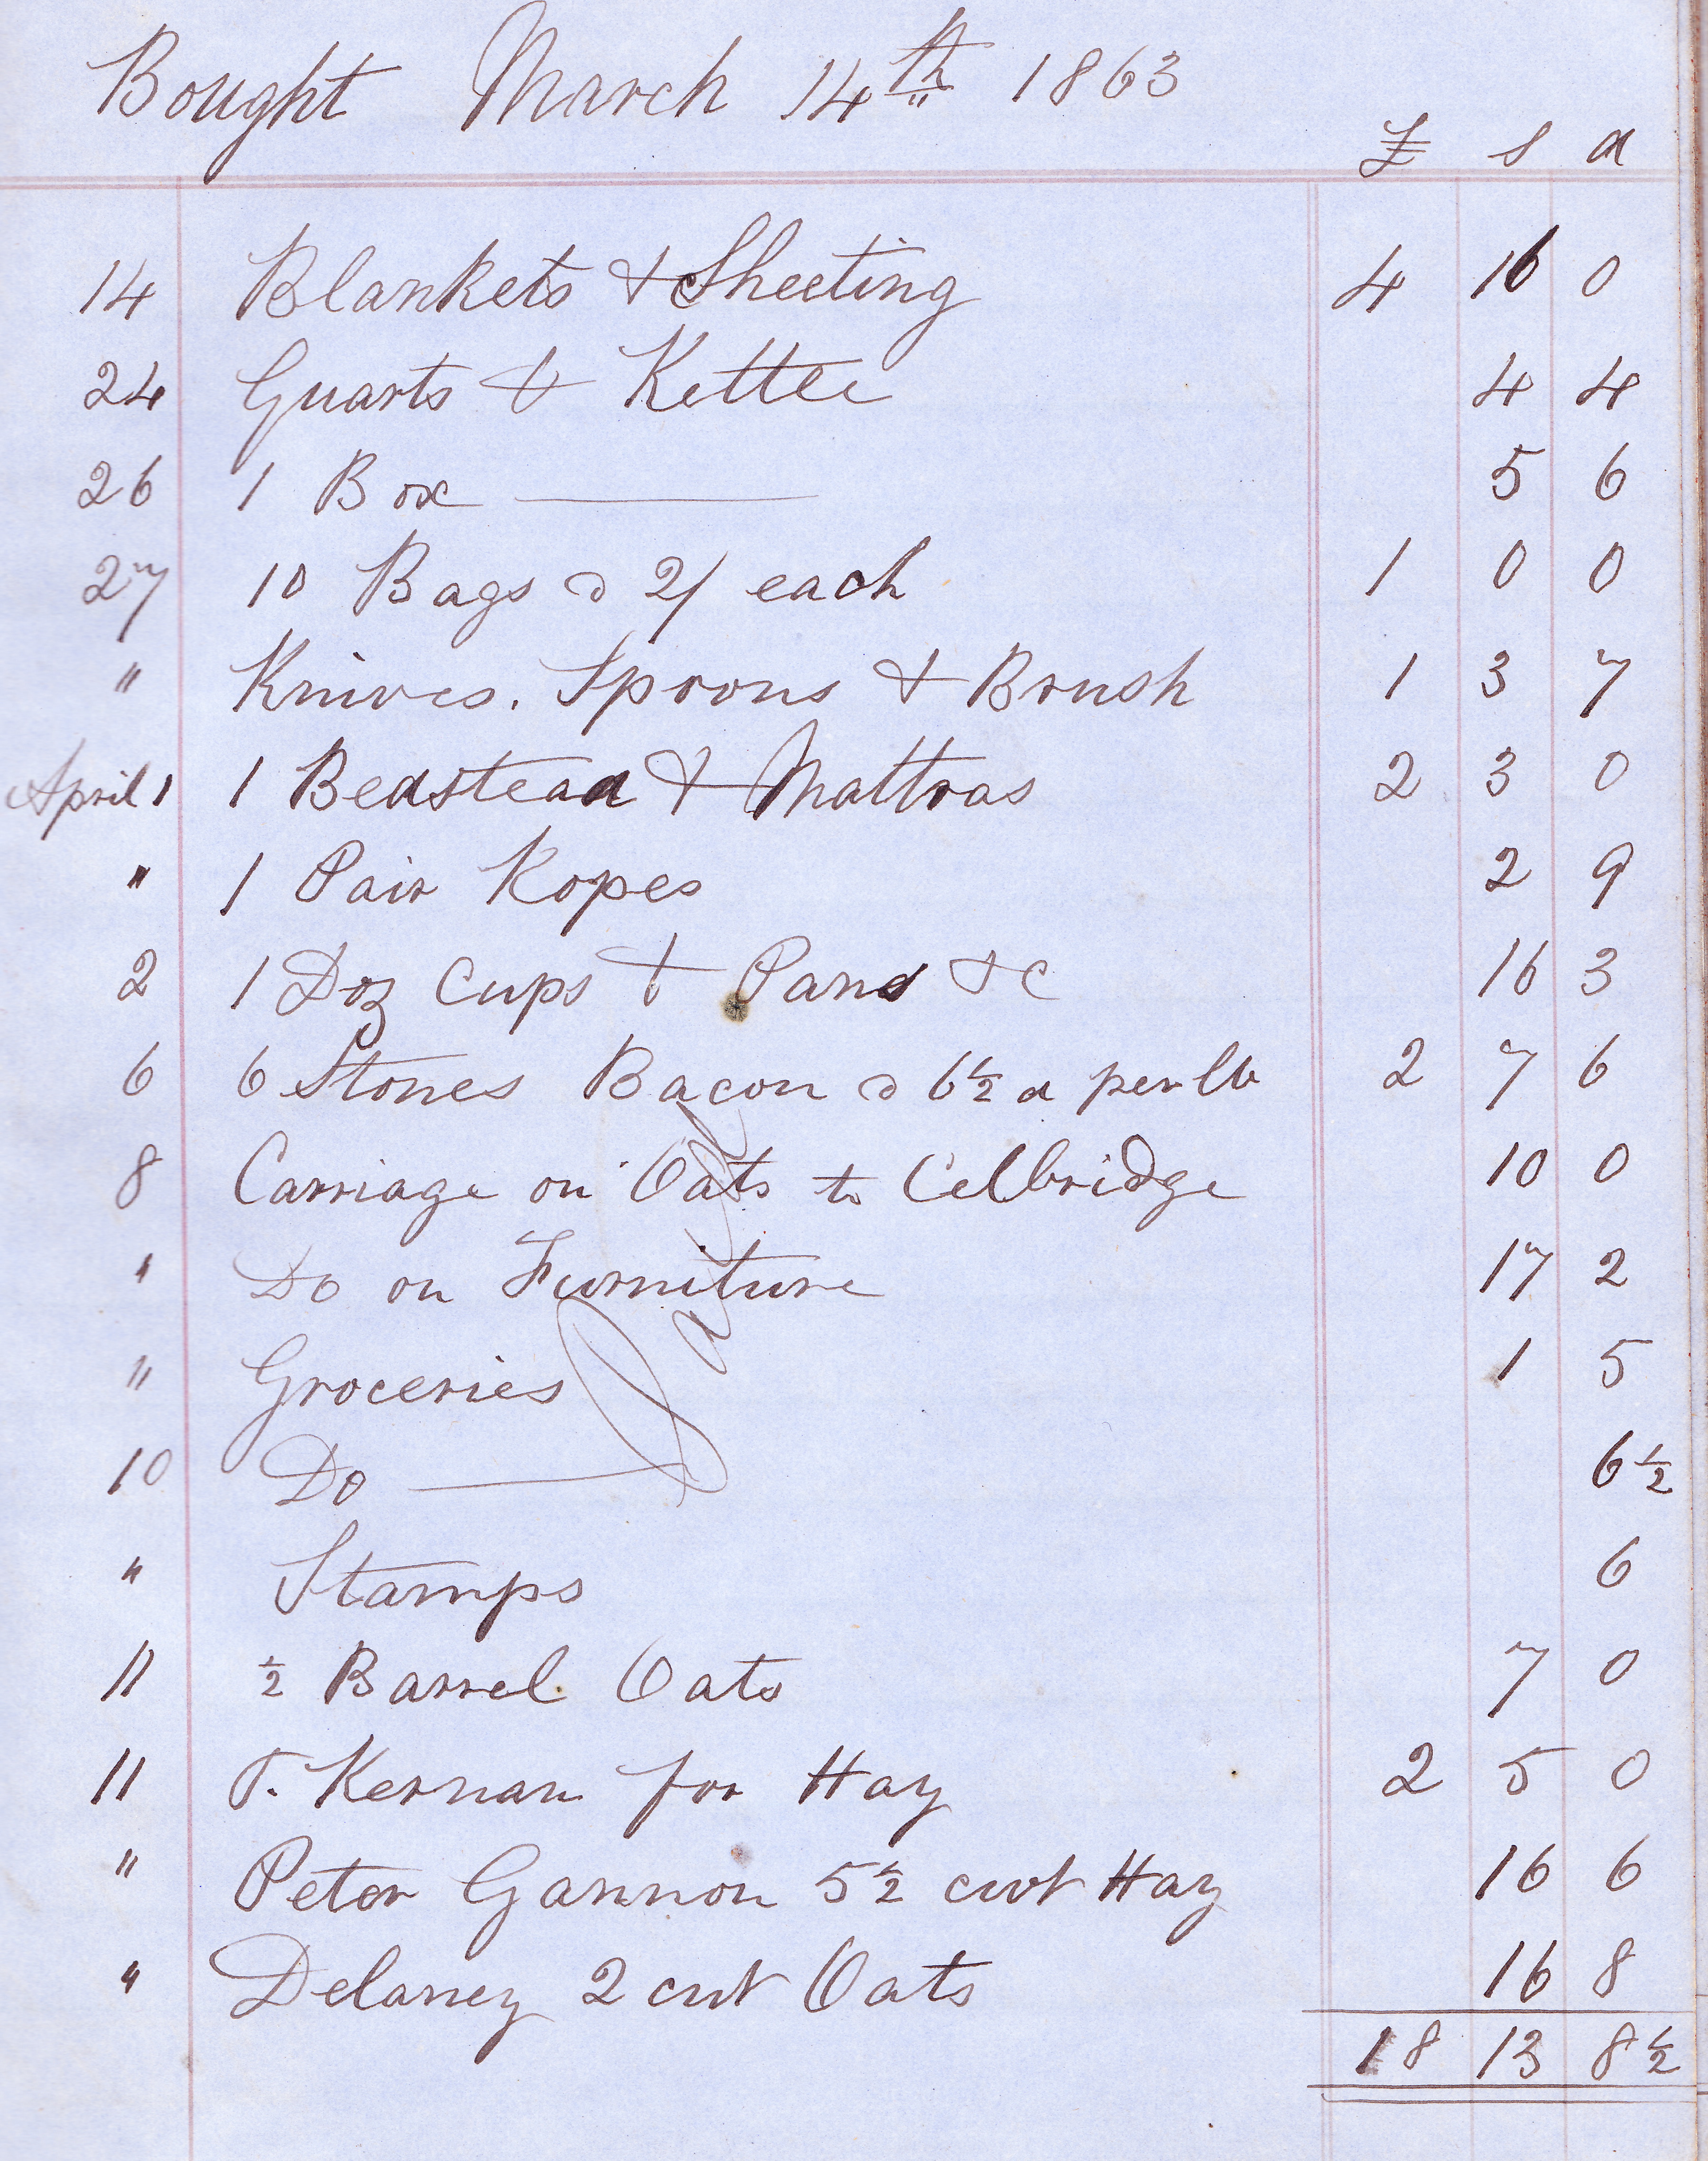 Bought March 14th 1863
£ s d
14 Blankets & Sheeting 4 16 0
24 Quarts & Kettle 4 4
26 1 Box 5 6
27 10 Bags @ 2/ each 1 0 0
" Knives. Spoons & Brush 1 3 7
April 1 1 Bedstead & Mattras 2 3 0
" 1 Pair Ropes 2 9
2 1 Doz Cups & Pans &c 16 3
6 6 Stones Bacon @ 6½ d per lb 2 7 6
8 Carriage on Oats to Celbridge 10 0
" Do on Furniture 17 2
" Groceries 1 5
10 Do 6½
" Stamps 6
11 ½ Barrel Oats 7 0
11 T. Kernan for Hay 2 5 0
" Peter Gannon 5½ cwt Hay 16 6
" Delaney 2 cwt Oats 16 8
18 13 8½